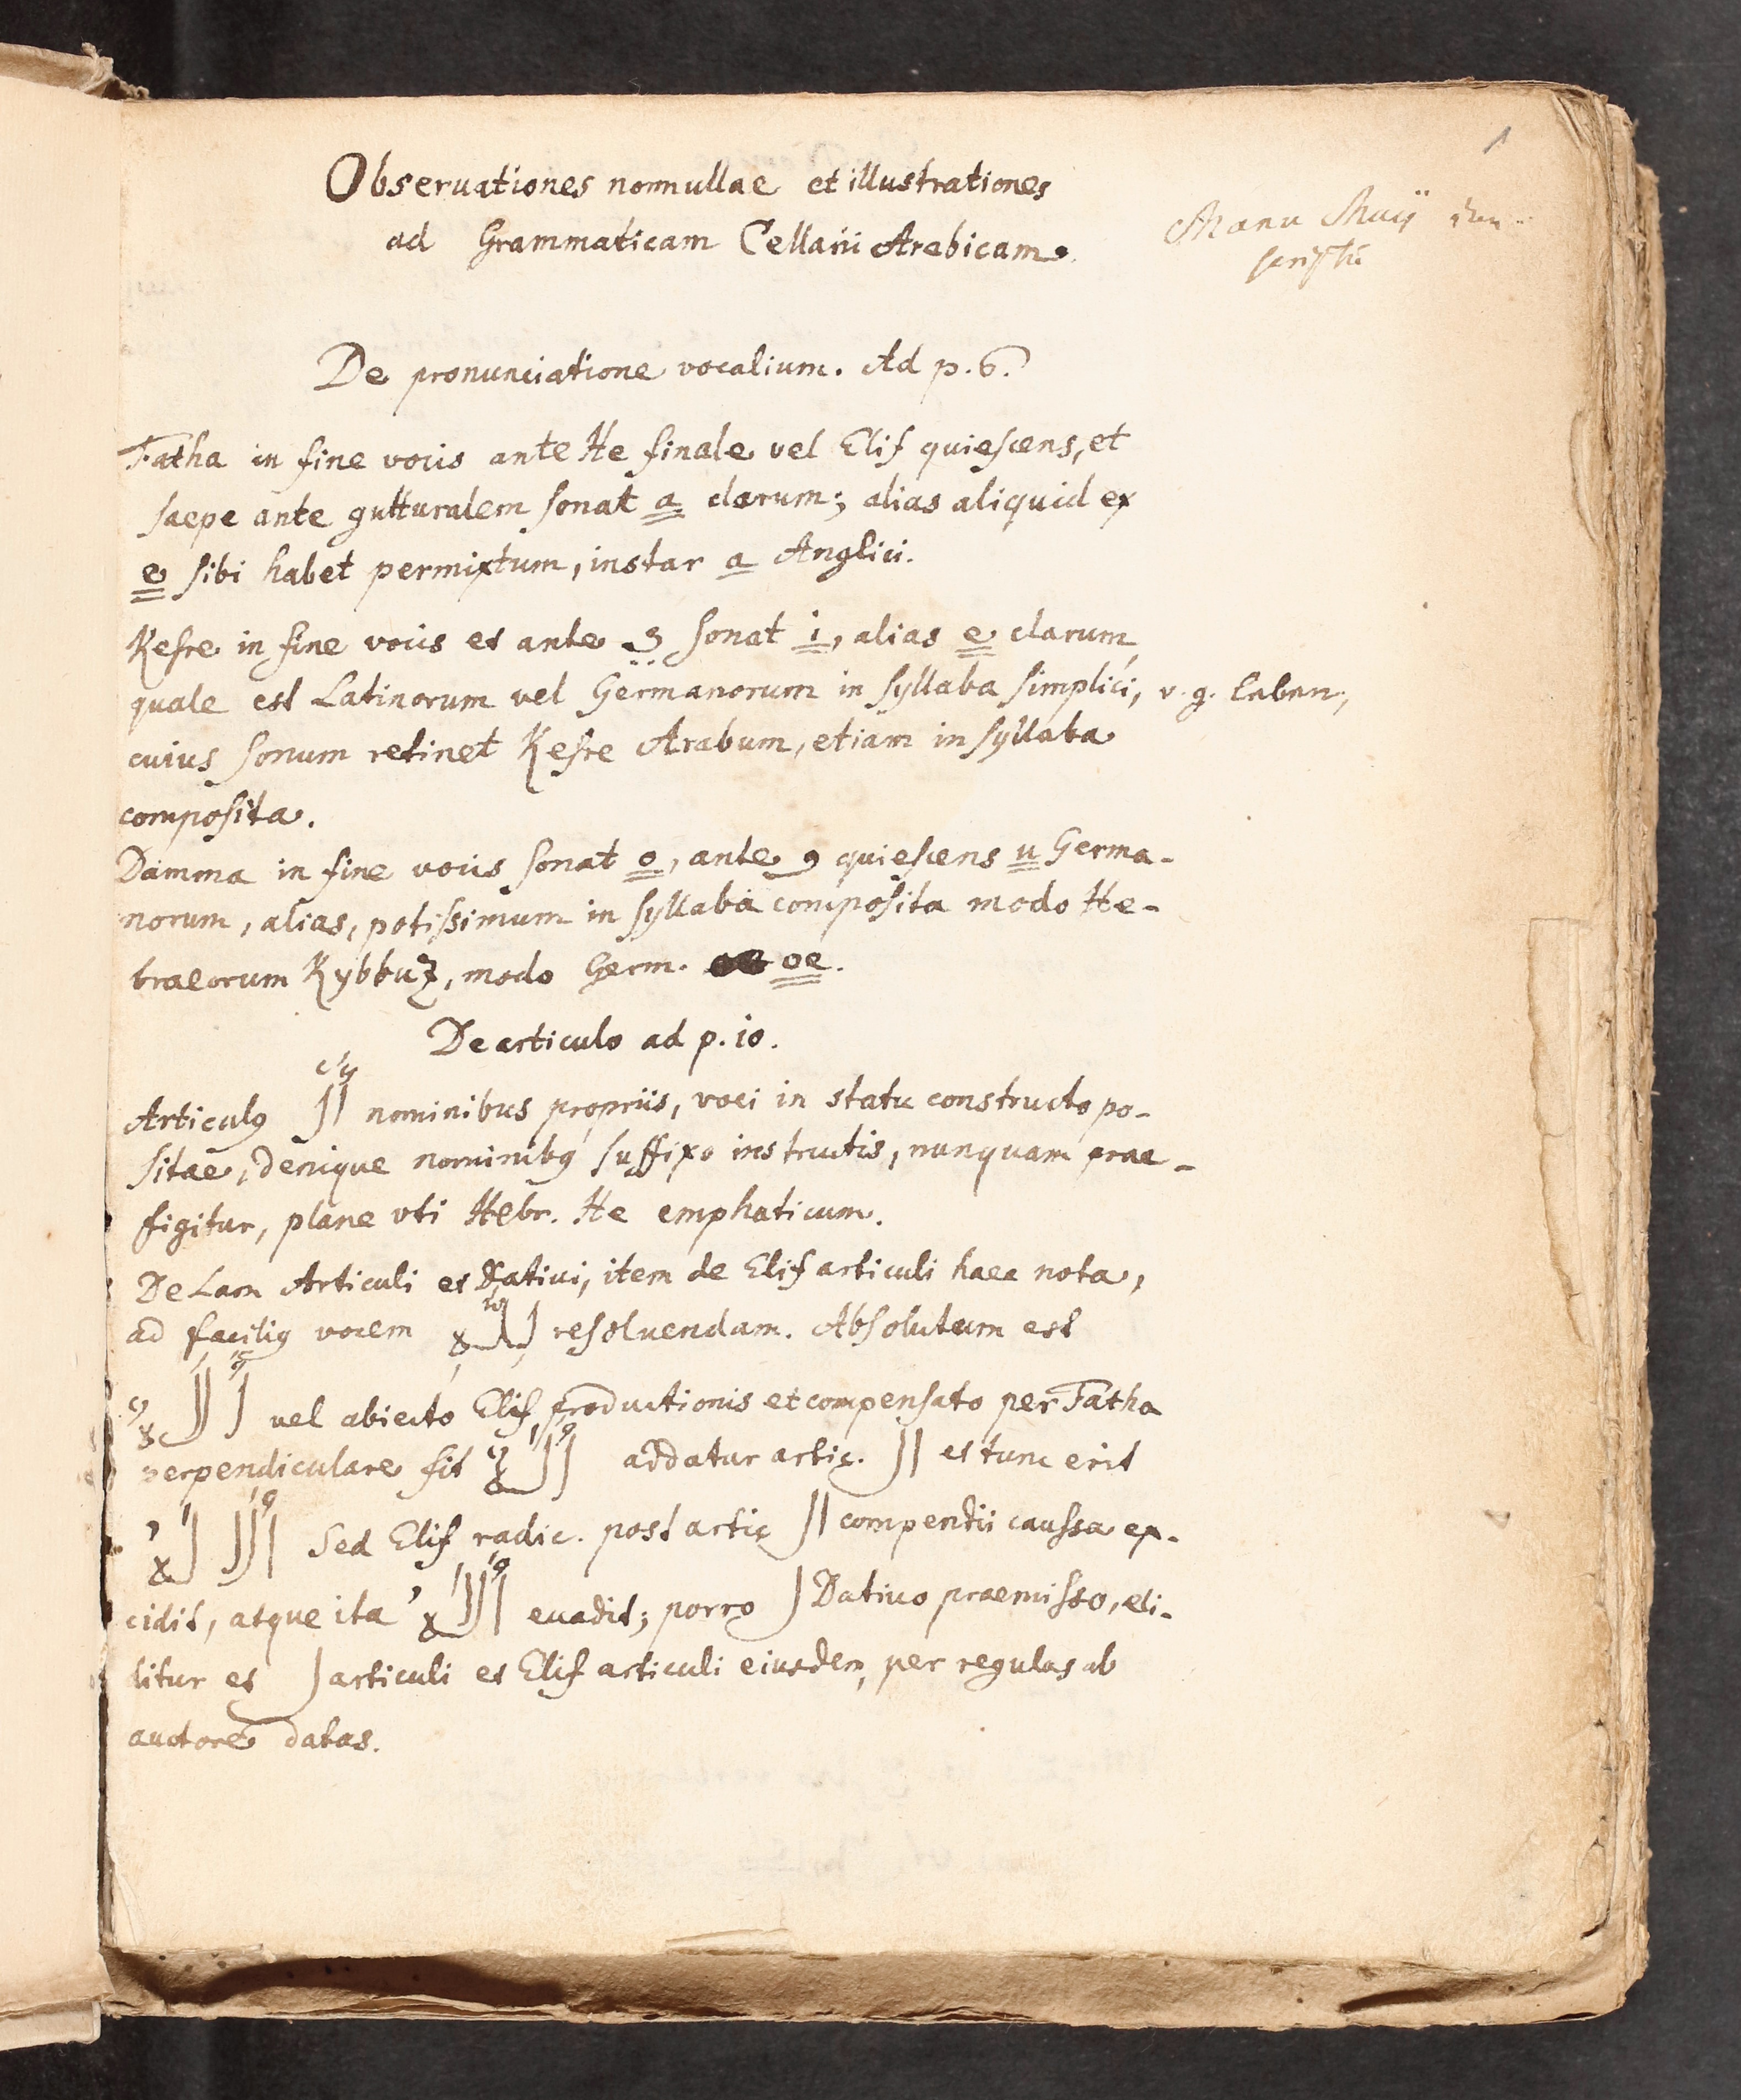 1
Observationes nonnullae et illustrationes
ad Grammaticam Cellarii Arabicam.
Manu
scriptū
De pronunciatione vocalium. Ad p. 6.
Fatha in fine vocis ante He finale vel Elif quiescens, et
saepe ante gutturalem sonat a clarum; alias aliquid ex
e sibi habet permixtum, instar a Anglici.
Kesre in fine vocis et ante ي sonat i, alias e clarum,
quale est Latinorum vel Germanorum in syllaba simplici, v. g. Leben,
cuius sonum retinet Kesre Arabum, etiam in syllaba
composita.
Damma in fine vocis sonat o, ante و quiescens u Germa-
norum, alias, potissimum in syllaba composita modo He-
braeorum Kybbuz, modo Germ. oe.
De articulo ad p. 10.
Articulꝰ ال nominibus propriis, voci in statu constructo po-
sitae, denique nominibꝰ suffixo instructis, nunquam prae-
figitur, plane vti Hebr. He emphaticum.
De Lam Articuli et Dativi, item de Elif articuli haec nota,
ad faciliꝰ vocem لله resoluendam. Absolutum est
إلاه vel abiecto Elif productionis et compensato per Fatha
perpendiculare fit إله addatur artic. ال et tunc erit
الإله Sed Elif radic. post artic ال compendii caussa ex-
cidit, atque ita الله euadit; porro ل Dativo praemisso, eli-
ditur et ل articuli et Elif articuli eiusdem, per regulas ab
auctore datas.